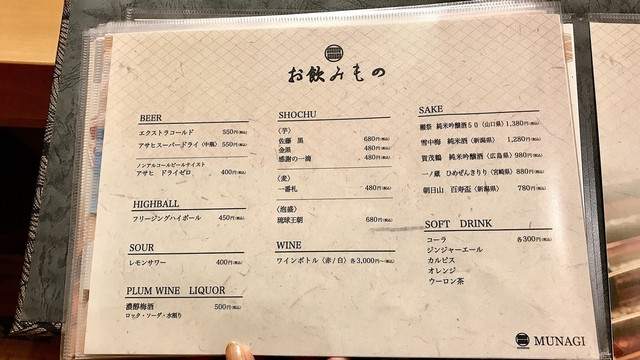 お飲みもの
BEER
エクストラコールド 550円(税込)
アサヒスーパードライ(中瓶) 550円(税込)
ノンアルコールビールテイスト
アサヒ ドライゼロ 400円(税込)
HIGHBALL
フリージングハイボール 450円(税込)
SOUR
レモンサワー 400円(税込)
PLUM WINE LIQUOR
濃醇梅酒 500円(税込)
ロック・ソーダ・水割り
SHOCHU
〈芋〉
佐藤 黒 680円(税込)
金黒 480円(税込)
感謝の一滴 480円(税込)
〈麦〉
一番札 480円(税込)
〈泡盛〉
琉球王朝 680円(税込)
WINE
ワインボトル(赤/白) 各3,000円〜(税込)
SAKE
獺祭 純米吟醸酒50(山口県) 1,380円(税込)
雪中梅 純米酒(新潟県) 1,280円(税込)
賀茂鶴 純米吟醸酒(広島県) 980円(税込)
一ノ蔵 ひめぜんきりり(宮崎県) 880円(税込)
朝日山 百寿盃(新潟県) 780円(税込)
SOFT DRINK
コーラ 各300円(税込)
ジンジャーエール
カルピス
オレンジ
ウーロン茶
MUNAGI